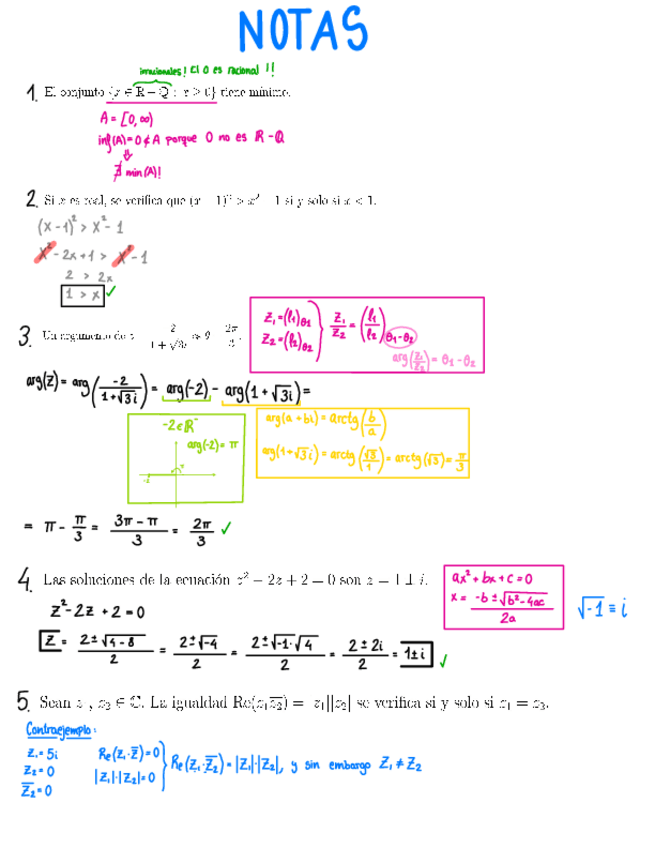 NOTAS
irracionales! El 0 es racional!!
1. El conjunto {x ∈ R − Q : x ≥ 0} tiene mínimo.
A = [0, ∞)
inf(A) = 0 ∉ A porque 0 no es R - Q
⇓
∄ min(A)!
2. Si x es real, se verifica que (x − 1)² > x² − 1 si y solo si x < 1.
(x-1)² > x² - 1
x² - 2x + 1 > x² - 1
2 > 2x
1 > x ✓
z₁ = (r₁)θ1
z₂ = (r₂)θ2
z₁/z₂ = (r₁/r₂)θ1-θ2
arg(z₁/z₂) = θ1 - θ2
3. Un argumento de
arg(z) = arg(-2/(1+√3i)) = arg(-2) - arg(1+√3i) =
-2 ∈ R⁻
arg(-2) = π
-2
arg(a + bi) = arctg(b/a)
arg(1+√3i) = arctg(√3/1) = arctg(√3) = π/3
= π - π/3 = (3π - π)/3 = 2π/3 ✓
4. Las soluciones de la ecuación z² − 2z + 2 = 0 son z = 1 ± i.
ax² + bx + c = 0
x = (-b ± √(b² - 4ac))/2a
√-1 ≡ i
z² - 2z + 2 = 0
z = (2 ± √(4-8))/2 = (2 ± √-4)/2 = (2 ± √-1·√4)/2 = (2 ± 2i)/2 = 1 ± i ✓
5. Sean z₁, z₂ ∈ C. La igualdad Re(z₁z̄₂) = |z₁||z₂| se verifica si y solo si z₁ = z₂.
Contraejemplo:
z₁ = 5i
z₂ = 0
z̄₂ = 0
Re(z₁·z̄) = 0
|z₁|·|z₂| = 0
Re(z₁·z̄₂) = |z₁|·|z₂|, y sin embargo z₁ ≠ z₂